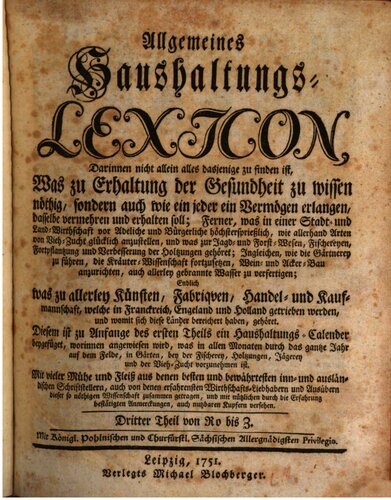 Allgemeines
Haushaltungs-
LEXICON,
Darinnen nicht allein alles dasjenige zu finden ist,
Was zu Erhaltung der Gesundheit zu wissen
nöthig, sondern auch wie ein jeder ein Vermögen erlangen,
dasselbe vermehren und erhalten soll; Ferner, was in einer Stadt- und
Land-Wirthschaft vor Adeliche und Bürgerliche höchstersprießlich, wie allerhand Arten
von Vieh-Zucht glücklich anzustellen, und was zur Jagd- und Forst-Wesen, Fischereyen,
Fortpflantzung und Verbesserung der Holtzungen gehöret; Ingleichen, wie die Gärtnerey
zu führen, die Kräuter-Wissenschaft fortzusetzen, Wein- und Acker-Bau
anzurichten, auch allerley gebrannte Wasser zu verfertigen;
Endlich
was zu allerley Künsten, Fabriqven, Handel- und Kauf-
mannschaft, welche in Franckreich, Engeland und Holland getrieben werden,
und womit sich diese Länder bereichert haben, gehöret.
Diesem ist zu Anfange des ersten Theils ein Haushaltungs-Calender
beygefüget, worinnen angewiesen wird, was in allen Monaten durch das gantze Jahr
auf dem Felde, in Gärten, bey der Fischerey, Holtzungen, Jägerey
und der Vieh-Zucht vorzunehmen ist.
Mit vieler Mühe und Fleiß aus denen besten und bewährtesten inn- und auslän-
dischen Schriftstellern, auch von denen erfahrensten Wirthschafts-Liebhabern und Ausübern
dieser so nöthigen Wissenschaft zusammen getragen, und mit nützlichen durch die Erfahrung
bestätigten Anmerckungen, auch nutzbaren Kupfern versehen.
Dritter Theil von Ro bis Z.
Mit Königl. Pohlnischen und Churfürstl. Sächsischen Allergnädigsten Privilegio.
Leipzig, 1751.
Verlegts Michael Blochberger.